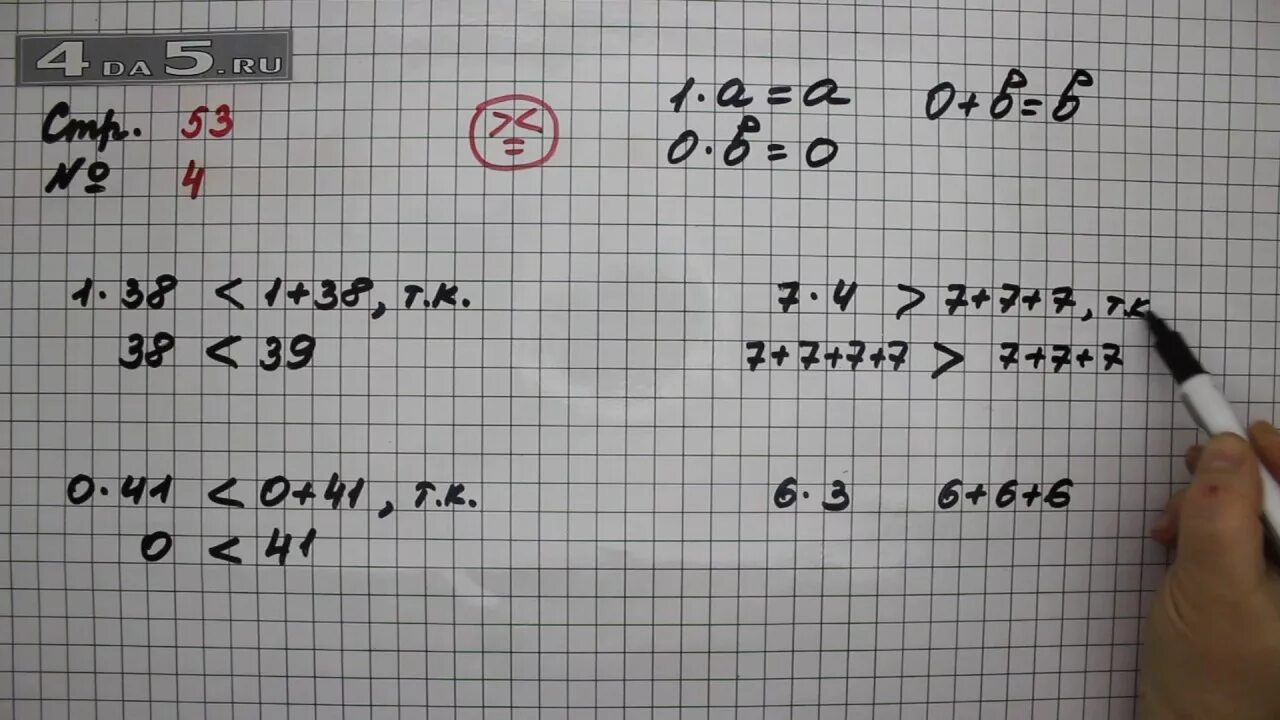 4DA5.RU
Стр. 53
№ 4
><
=
1·a=a
0·b=0
0+b=b
1·38 < 1+38, т.к.
38 < 39
0·41 < 0+41, т.к.
0 < 41
7·4 > 7+7+7, т.к
7+7+7+7 > 7+7+7
6·3 6+6+6